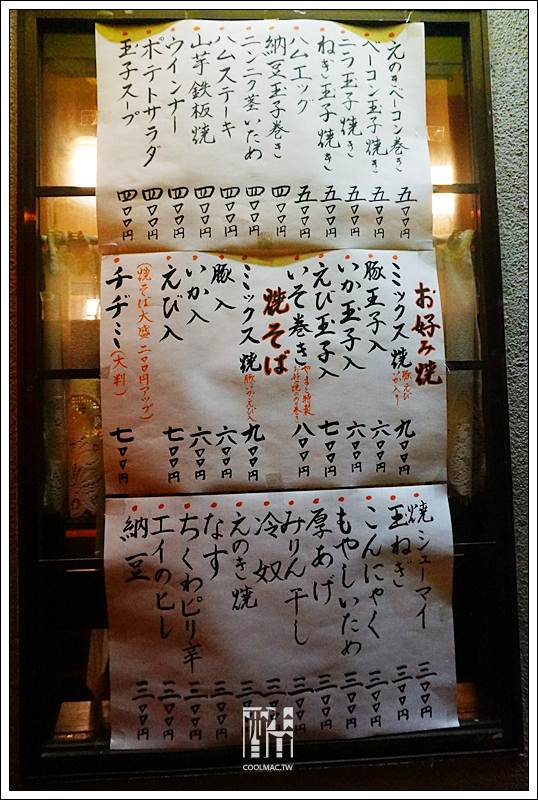 えのきベーコン巻き 五〇〇円
ベーコン玉子焼き 五〇〇円
ニラ玉子焼き 五〇〇円
ねぎ玉子焼き 五〇〇円
ハムエッグ 五〇〇円
納豆玉子巻き 四〇〇円
ニンニク茎いため 四〇〇円
ハムステーキ 四〇〇円
山芋鉄板焼 四〇〇円
ウインナー 四〇〇円
ポテトサラダ 四〇〇円
玉子スープ 四〇〇円
お好み焼
ミックス焼 豚・えび いか入り 九〇〇円
豚玉子入 六〇〇円
いか玉子入 六〇〇円
えび玉子入 七〇〇円
いそ巻き やまと特製 お好み焼のり巻き 八〇〇円
焼そば
ミックス焼 豚・いか・えび入 九〇〇円
豚入 六〇〇円
いか入 六〇〇円
えび入 七〇〇円
(焼そば大盛 二〇〇円アップ)
チヂミ(大判) 七〇〇円
焼シューマイ 三〇〇円
玉ねぎ 三〇〇円
こんにゃく 三〇〇円
もやしいため 三〇〇円
厚あげ 三〇〇円
みりん干し 三〇〇円
冷奴 三〇〇円
えのき焼 三〇〇円
なす 三〇〇円
ちくわピリ辛 三〇〇円
エイのヒレ 三〇〇円
納豆 三〇〇円
酷
COOLMAC.TW